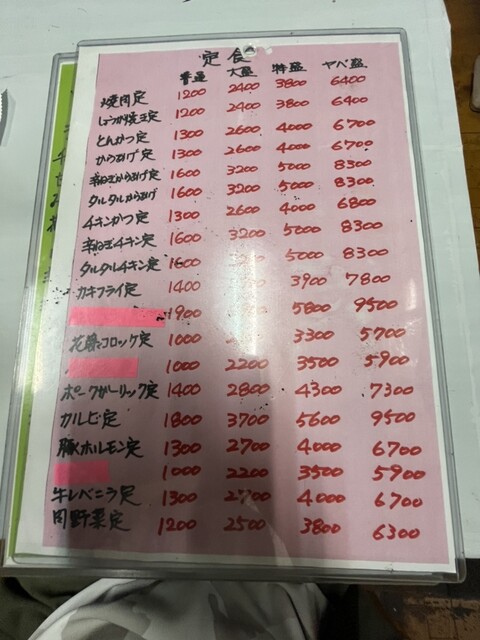 定食
普通 大盛 特盛 ヤベ盛
焼肉定 1200 2400 3800 6400
しょうが焼き定 1200 2400 3800 6400
とんかつ定 1300 2600 4000 6700
からあげ定 1300 2600 4000 6700
辛ねぎからあげ定 1600 3200 5000 8300
タルタルからあげ 1600 3200 5000 8300
チキンかつ定 1300 2600 4000 6800
辛ねぎチキン定 1600 3200 5000 8300
タルタルチキン定 1600 5000 8300
カキフライ定 1400 3900 7800
1900 5800 9500
コロッケ定 1000 3300 5700
1000 2200 3500 5900
ポークガーリック定 1400 2800 4300 7300
カルビ定 1800 3700 5600 9500
豚ホルモン定 1300 2700 4000 6700
1000 2200 3500 5900
牛レバニラ定 1300 2700 4000 6700
肉野菜定 1200 2500 3800 6300